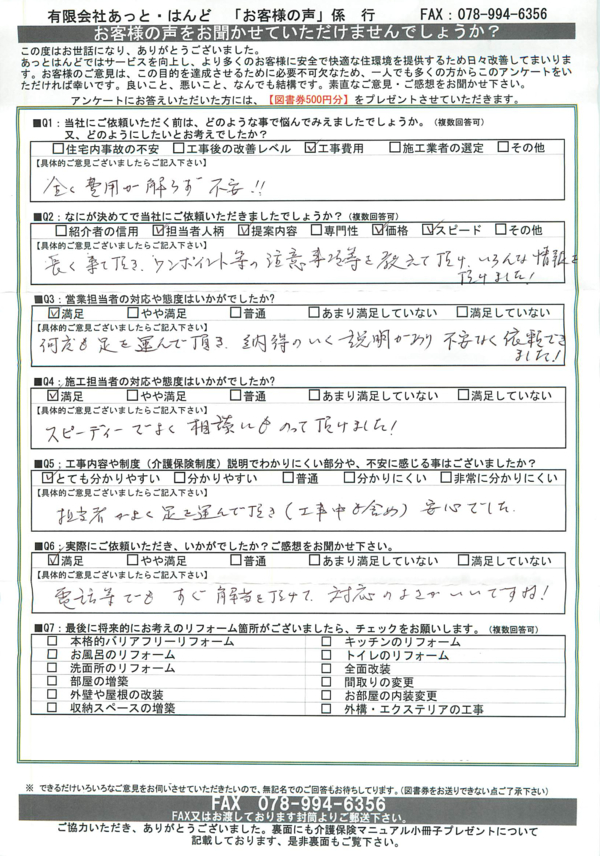 有限会社あっと・はんど　「お客様の声」係　行　FAX：078-994-6356
お客様の声をお聞かせていただけませんでしょうか？
この度はお世話になり、ありがとうございました。
あっとはんどではサービスを向上し、より多くのお客様に安全で快適な住環境を提供するため日々改善してまいります。お客様のご意見は、この目的を達成させるために必要不可欠なため、一人でも多くの方からこのアンケートをいただければ幸いです。良いこと、悪いこと、なんでも結構です。素直なご意見・ご感想をお聞かせ下さい。
アンケートにお答えいただいた方には、【図書券500円分】をプレゼントさせていただきます。
■Q1：当社にご依頼いただく前は、どのような事で悩んでみえましたでしょうか。（複数回答可）
又、どのようにしたいとお考えでしたか？
□住宅内事故の不安 □工事後の改善レベル ☑工事費用 □施工業者の選定 □その他
【具体的ご意見ございましたらご記入下さい】
全く費用が解らず不安!!
■Q2：なにが決めてで当社にご依頼いただきましたでしょうか？（複数回答可）
□紹介者の信用 ☑担当者人柄 ☑提案内容 □専門性 ☑価格 ☑スピード □その他
【具体的ご意見ございましたらご記入下さい】
長く来て頂き、ワンポイント等の注意事項等を教えて頂け、いろんな情報を
頂けました!
■Q3：営業担当者の対応や態度はいかがでしたか？
☑満足 □やや満足 □普通 □あまり満足していない □満足していない
【具体的ご意見ございましたらご記入下さい】
何度も足を運んで頂き、納得のいく説明があり不安なく依頼でき
ました!
■Q4：施工担当者の対応や態度はいかがでしたか？
☑満足 □やや満足 □普通 □あまり満足していない □満足していない
【具体的ご意見ございましたらご記入下さい】
スピーディーでよく相談にものって頂けました!
■Q5：工事内容や制度（介護保険制度）説明でわかりにくい部分や、不安に感じる事はございましたか？
☑とても分かりやすい □分かりやすい □普通 □分かりにくい □非常に分かりにくい
【具体的ご意見ございましたらご記入下さい】
担当者がよく足を運んで頂き（工事中も含め）安心でした。
■Q6：実際にご依頼いただき、いかがでしたか？ご感想をお聞かせ下さい。
☑満足 □やや満足 □普通 □あまり満足していない □満足していない
【具体的ご意見ございましたらご記入下さい】
電話等でもすぐ解答を頂けて、対応のよさがいいですね!
■Q7：最後に将来的にお考えのリフォーム箇所がございましたら、チェックをお願いします。（複数回答可）
□ 本格的バリアフリーリフォーム □ キッチンのリフォーム
□ お風呂のリフォーム □ トイレのリフォーム
□ 洗面所のリフォーム □ 全面改装
□ 部屋の増築 □ 間取りの変更
□ 外壁や屋根の改装 □ お部屋の内装変更
□ 収納スペースの増築 □ 外構・エクステリアの工事
※ できるだけいろいろなご意見をお伺いさせていただきたいので、無記名でのご回答もお待ちしてります。（図書券をお送りできない点ご了承下さい）
FAX　078-994-6356
FAX又はお渡ししております封筒よりご郵送下さい。
ご協力いただき、ありがとうございました。裏面にも介護保険マニュアル小冊子プレゼントについて
記載しております、是非裏面もご覧下さい。